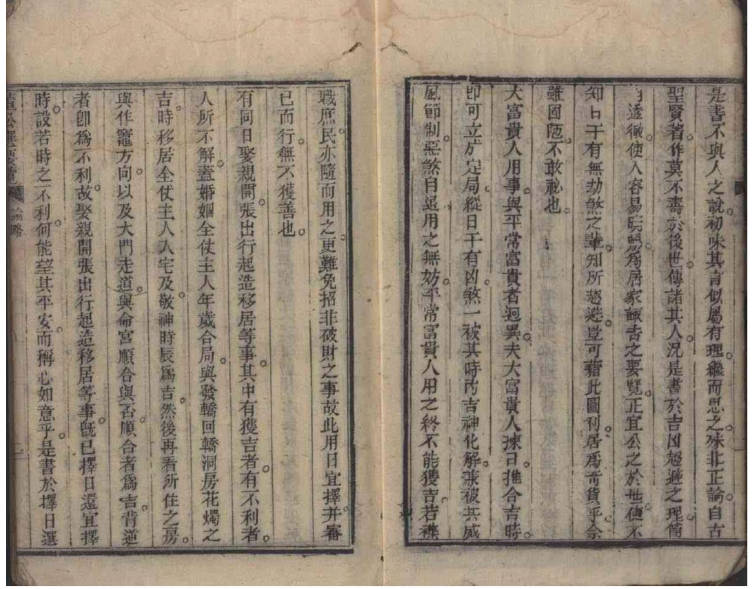 是書不與人之說初味其言似屬有理繼而思之殊非正論自古
聖賢著作莫不壽於後世傳諸其人況是書於吉凶趨避之理簡
透徹使人容易明曉為居家諏吉之要覽正宜公之於世使不
知日干有無劫煞之輩知所趨避豈可藉此圖刊居為奇貨乎余
雖固陋不敢祕也
大富貴人用事與平常富貴者迥異夫大富貴人揀日推合吉時
即可立於定局縱日干有凶煞一被其時內吉神化解張被其威
風節制惡煞自退用之無妨平常富貴人用之終不能獲吉若襍
職庶民亦隨而用之更難免招非破財之事故此用日宜擇并審
已而行無不獲善也
有同日娶親開張出行起造移居等事其中有獲吉者有不利者
人所不解蓋婚姻全仗主人年歲合局與發轎回轎洞房花燭之
吉時移居全仗主人入宅及敬神時辰為吉然後再看所住之房
與作竈方向以及大門走道與命宮順合與否順合者為吉背逆
者即為不利故娶親開張出行起造移居等事既已擇日還宜擇
時設若時之一不利何能望其平安而稱心如意乎是書於擇日選
董公選要覽 論略